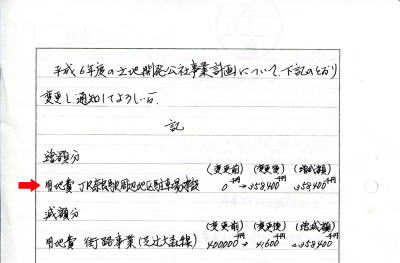 平成6年度の土地開発公社事業計画について、下記のとおり
変更し通知してよろしいか.
記
増額分
(変更前) (変更後) (増減額)
用地費 JR奈良駅周辺地区駐車場建設 0千円→358,400千円 358,400千円
減額分
(変更前) (変更後) (増減額)
用地費 街路事業(芝辻大森線) 400,000千円→41,600千円 △358,400千円